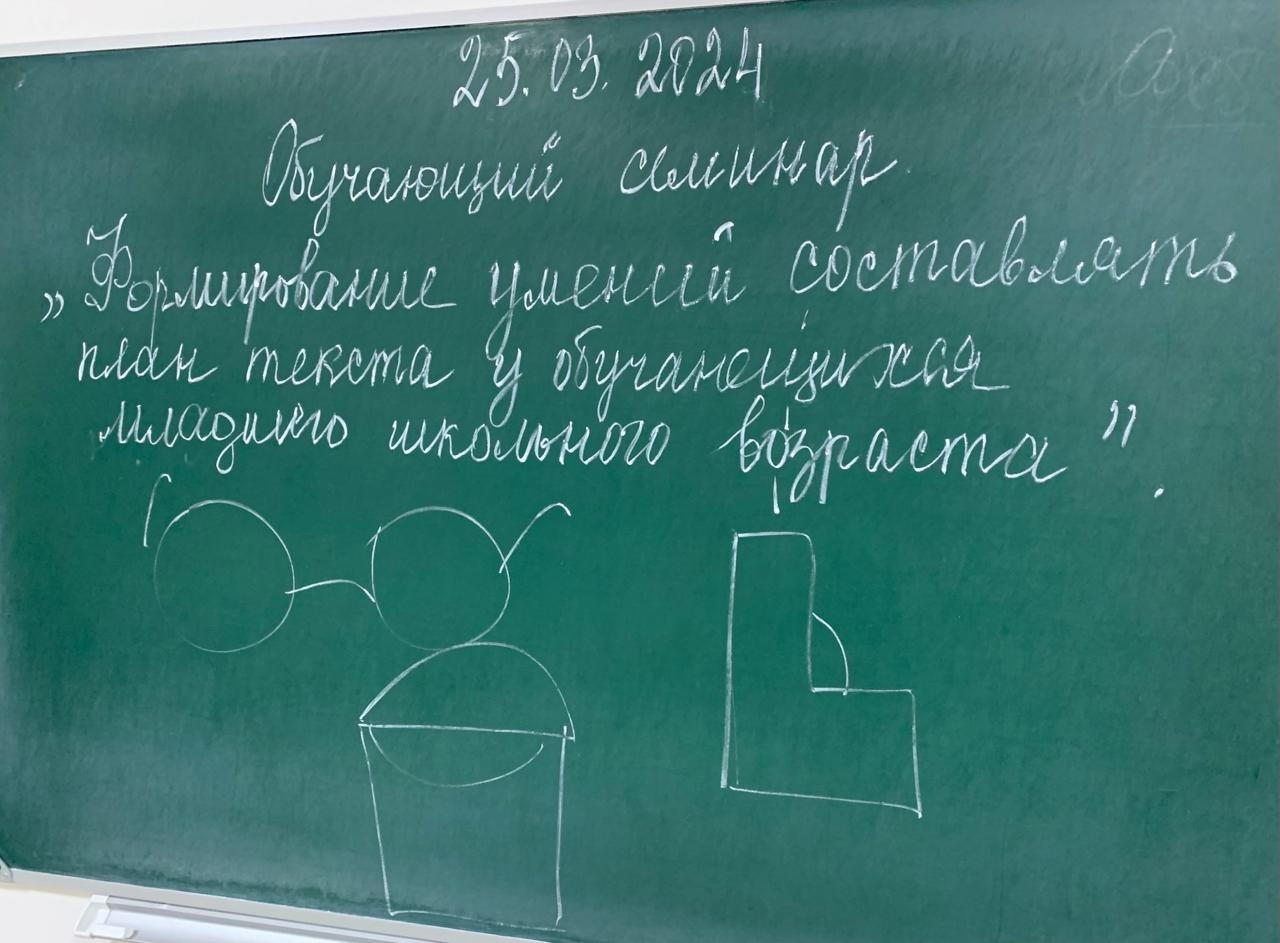 25.03.2024
Обучающий семинар
„Формирование умений составлять
план текста у обучающихся
младшего школьного возраста”.